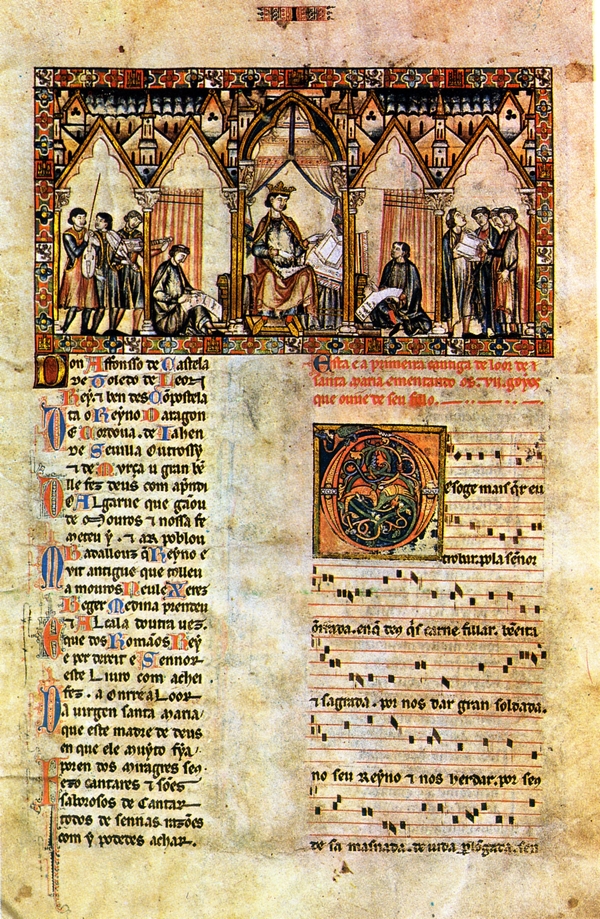 I
Don Affonsso de Castela
de Toledo de Leon
Rey ⁊ ben des Conpostela
ta o Reyno Daragon
De Cordova. de Iahen
de Sevilla Outrossy
⁊ de Murça u gran bẽ
lle fez deus com apndi
Do Algarve que gãou
de Mouros ⁊ nossa fe
meteu y. ⁊ ar poblou
Badallouz q̃ Reyno e
Muit antigue que tolleu
a mouros Nevle Xerez
Beger Medina prenteu
⁊ Alcala doutra vez.
E que dos Romãos Rey
e per dereit e Sennor
este Livro com achei
fez. a Onrr e a Loor
Da virgen santa maria
que este madre de deus
en que ele muyto fya
poren dos miragres seus
Fezo cantares ⁊ sões
saborosos de Cantar
todos de sennas razões
com y podedes achar.
Esta e a primeira cantiga de loor de
santa maria ementando os .vii. goyos
que ouve de seu fillo.
Des oge mais q̃r eu
trobar. pola señor
onrrada. en q̃ deus q̃s carne fillar. bẽeita
⁊ sagrada. por nos dar gran soldada.
no seu Reyno ⁊ nos herdar. por seus
de sa masnada. de vida p̱lõgada. sen